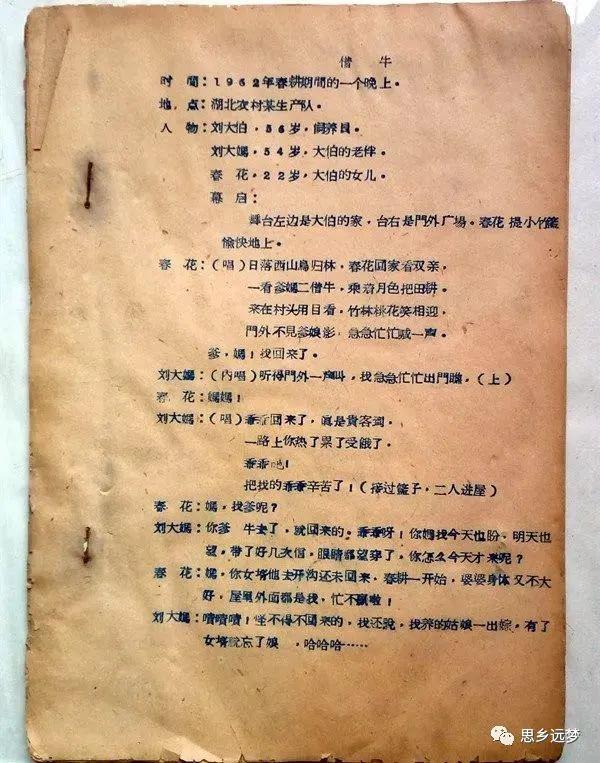 借 牛
时 間：1962年春耕期間的一个晚上。
地 点：湖北农村某生产队。
人 物：刘大伯，56岁，飼养員。
刘大嫣，54岁，大伯的老伴。
春 花，22岁，大伯的女儿。
幕 启：
舞台左边是大伯的家，台右是門外广場。春花 提小竹籃
愉快地上。
春 花：（唱）日落西山鳥归林，春花回家看双亲，
一看爹嫣二借牛，乘着月色把田耕。
来在村头用目看，竹林桃花笑相迎，
門外不見爹娘影，急急忙忙喊一声。
爹，嫣！我回来了。
刘大嫣：（内唱）听得門外一声叫，我急急忙忙出門瞧，（上）
春 花：嫣嫣！
刘大嫣：（唱）乖乖回来了，眞是貴客到。
一路上你热了累了受餓了。
乖乖吔！
把我的乖乖辛苦了！（接过籃子，二人进屋）
春 花：嫣，我爹呢？
刘大嫣：你爹 牛去了，就回来的。乖乖呀！你嫣我今天也盼，明天也
望，带了好几次信，眼睛都望穿了，你怎么今天才来呢？
春 花：嫣，你女壻他去开沟还未回来，春耕一开始，婆婆身体又不大
好，屋里外面都是我，忙不贏啦！
刘大嫣：嘖嘖嘖！怪不得不回来的，我还說，我养的姑娘一出嫁，有了
女壻就忘了娘 ，哈哈哈……
思乡远梦